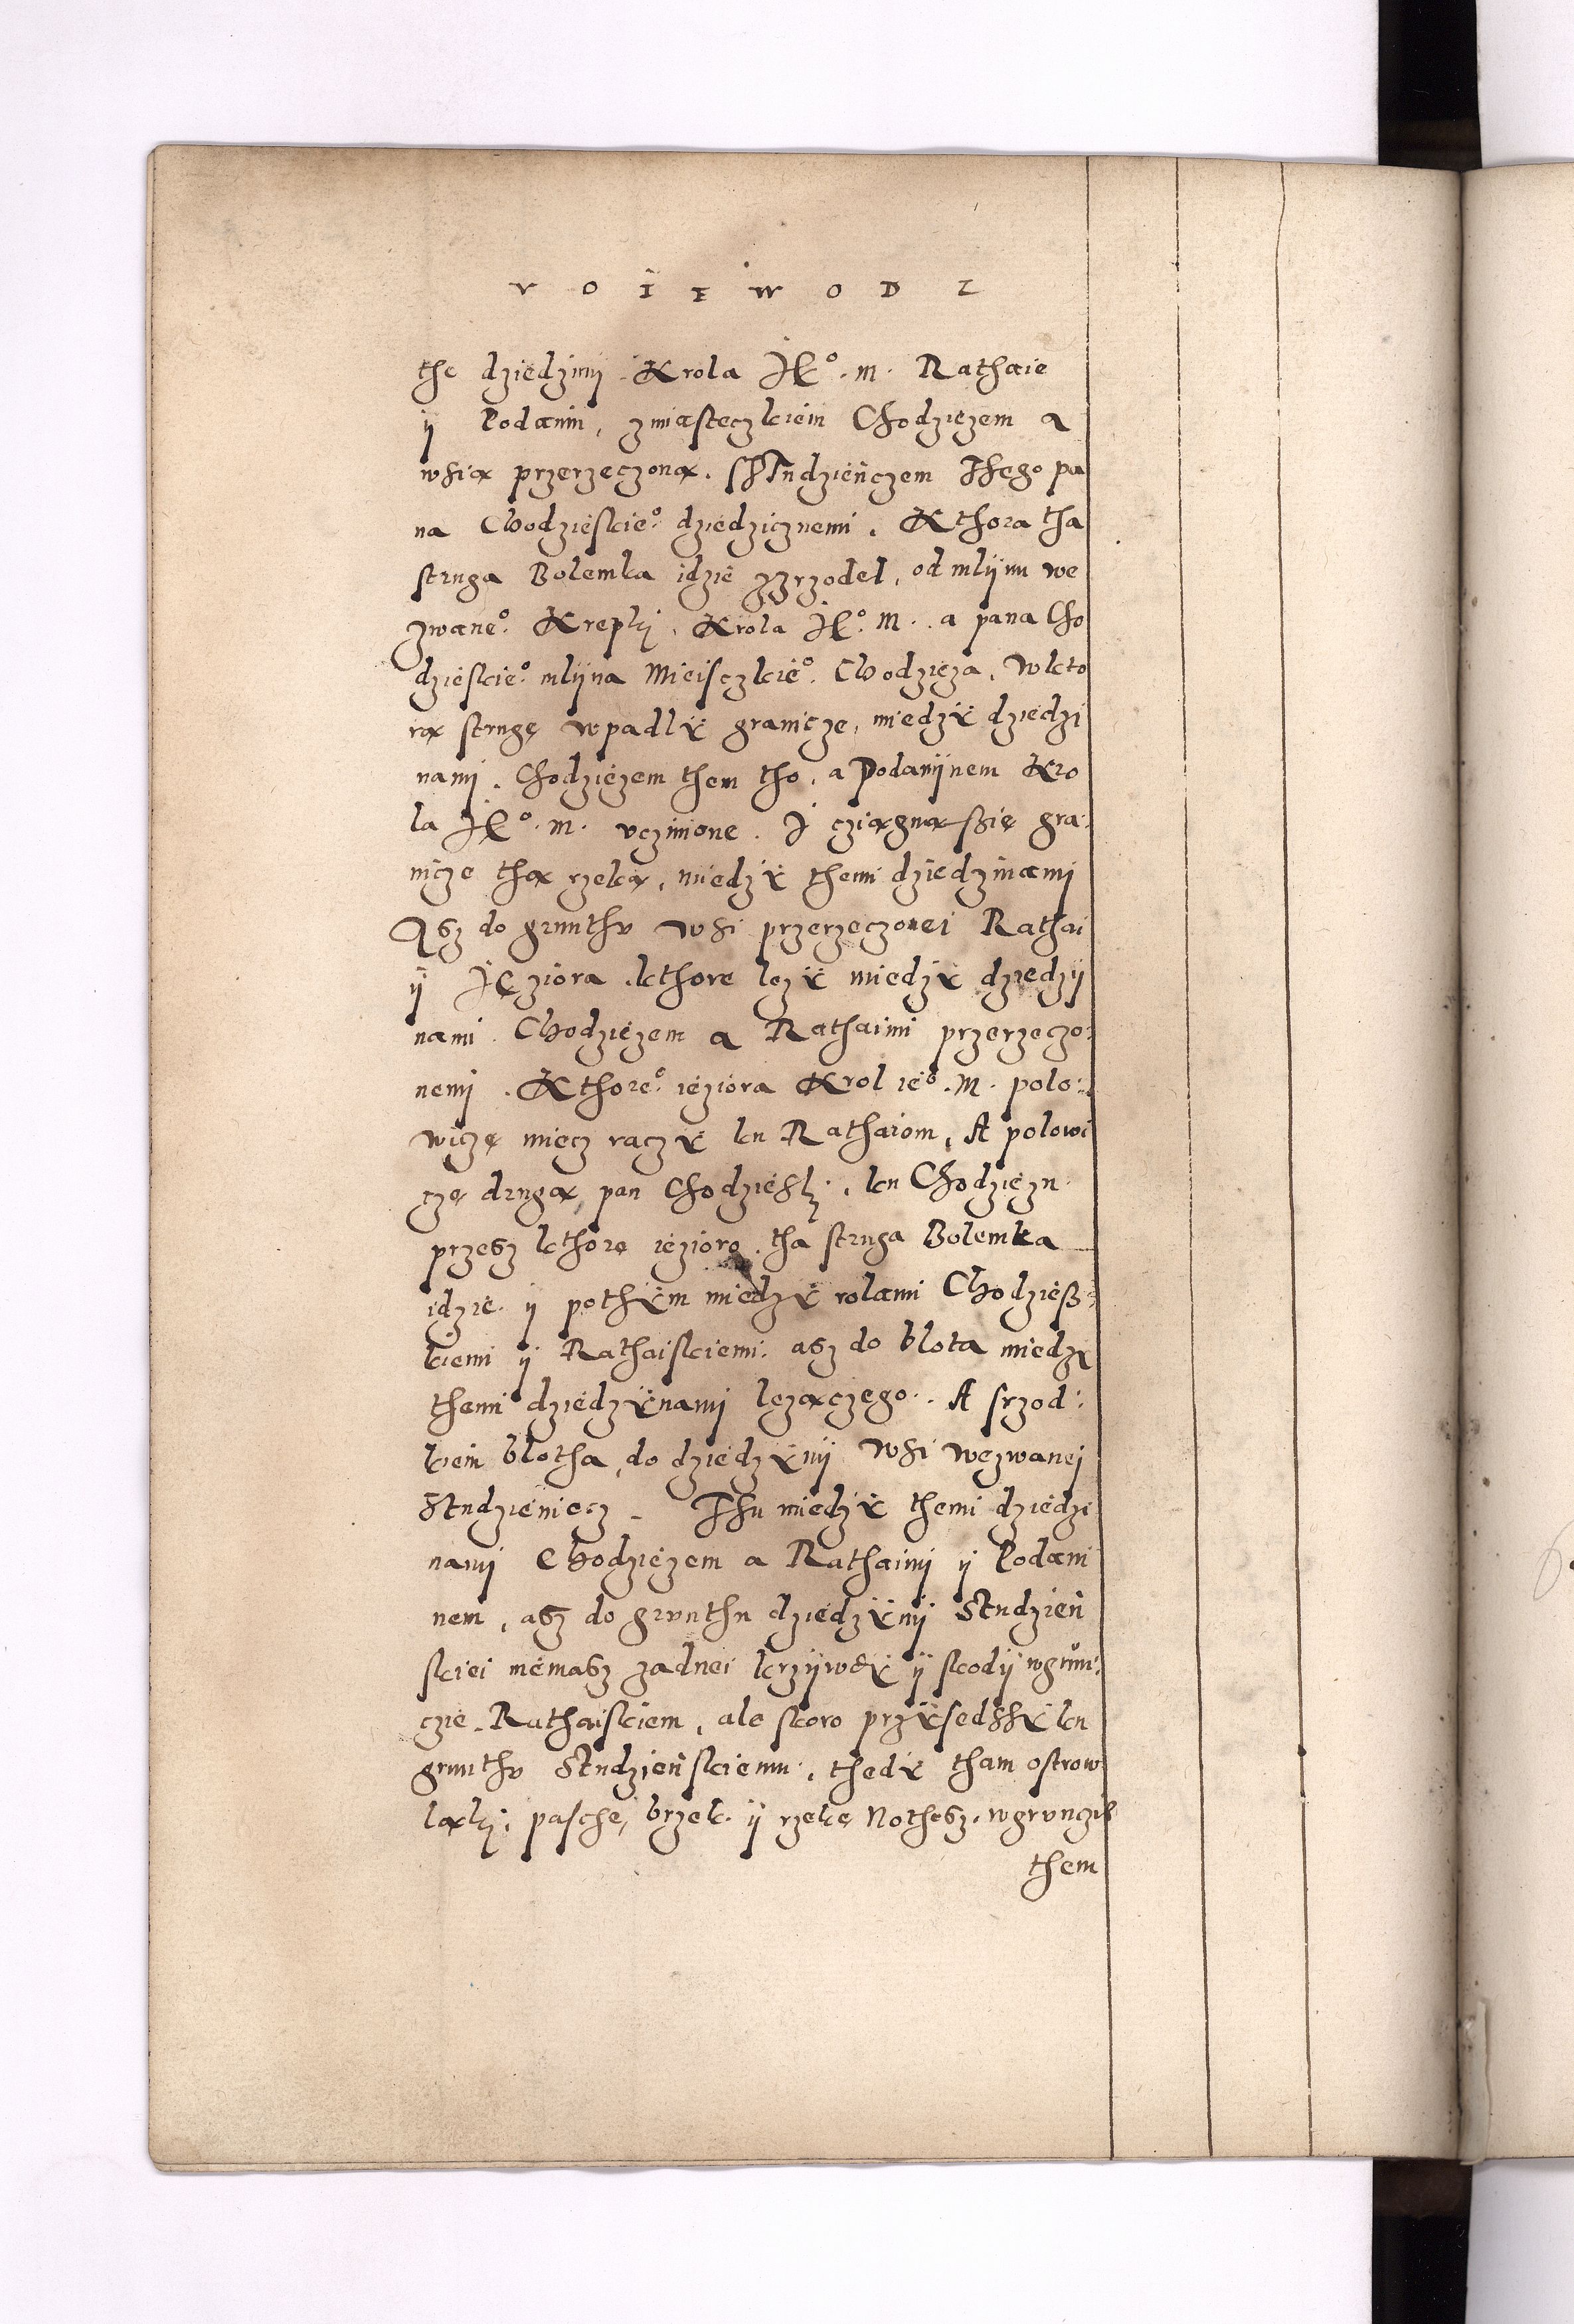 V O I E W O D Z
the dziedzinÿ. Krola JEº. M. Rathaie
ÿ Podanin, zmiasteczkiem Chodziezem a
wsią przerzeczoną. STudzieńczem Thego pa
na Chodzieskieº: dziedzicznemi. Kthora tha
struga Bolemka idzie zzrzodel, od mlÿnu we
zwaneº. Krepki, Krola JEº. M. a pana Cho
dzieskieº: mlÿna Mieisczkieº. Chodzieza, wkto
rą strugę wpadlÿ granicze, miedzÿ dziedzi
nami, Chodziezem them tho, a Podanÿnem Kro
la JEº. M. vczinione. I cziągną ssię gra:
nicze thą rzeką, miedzÿ themi dziedzinami
Asz do grunthv wsi przerzeczonei Rathai
ÿ Jęziora kthore lezÿ miedzÿ dziedzÿ
nami. Chodziezem a Rathaimi przerzeczo:
nemi. Kthoreº: ieziora Krol ieº. M. polo:
wiczę miecz raczÿ ku Rathaiom, A polowi
czę drugą, pan Chodzieski, ku Chodziezu
przesz kthore iezioro, tha struga Bolemka
idzie ÿ pothÿm miedzÿ rolami Chodziess:
kiemi ÿ Rathaiskiemi: asz do blota miedzÿ
themi dziedzÿnami lezączego. A srzod:
kiem blotha, do dziedzÿnÿ wsi wezwanej
Studzieniecz. Thu miedzÿ themi dziedzi
nami Chodziezem a Rathaimi ÿ Podani
nem, asz do grvnthu dziedzÿnÿ Studzień
skiei niemasz zadnei krzÿwdÿ ÿ skodÿ wgrun:
czie Rathaiskiem, ale skoro przÿsedssÿ ku
grunthv Studzieńskiemu, thedÿ tham ostrow
ląki, pasche, brzek ÿ rzekę Nothesz, wgrvnczie
them